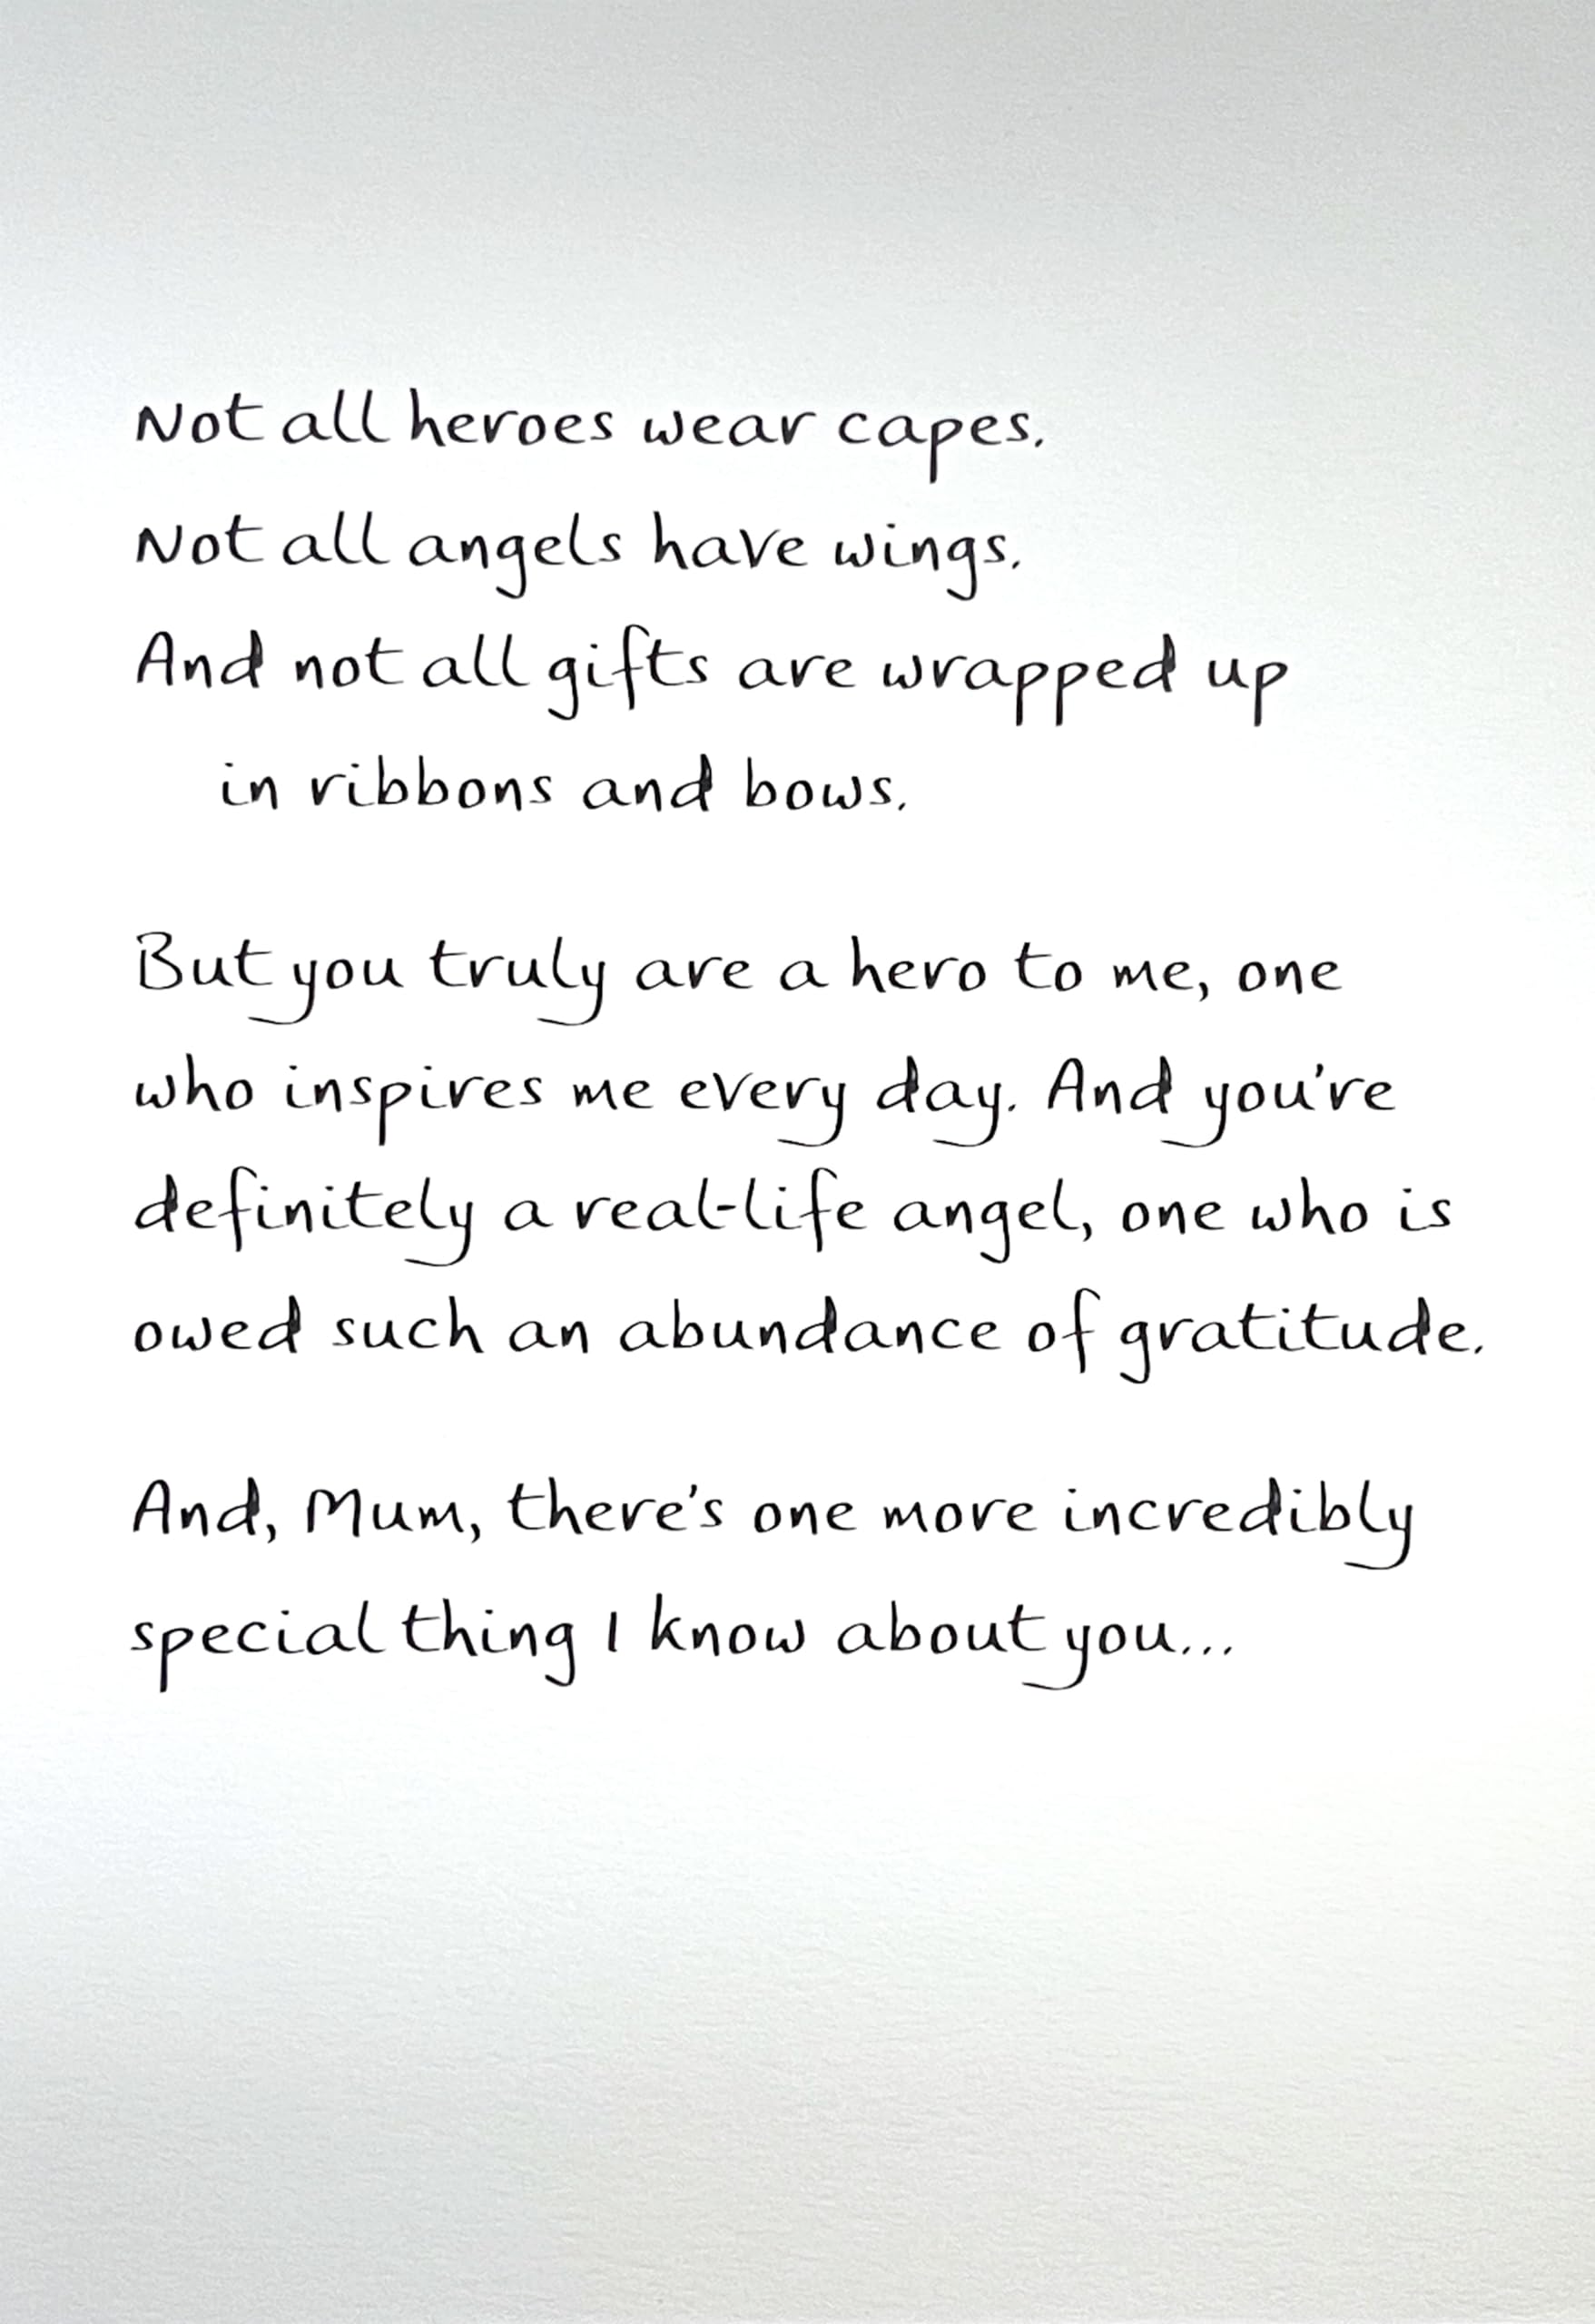 Not all heroes wear capes.
Not all angels have wings.
And not all gifts are wrapped up
in ribbons and bows.
But you truly are a hero to me, one
who inspires me every day. And you're
definitely a real-life angel, one who is
owed such an abundance of gratitude.
And, Mum, there's one more incredibly
special thing I know about you...